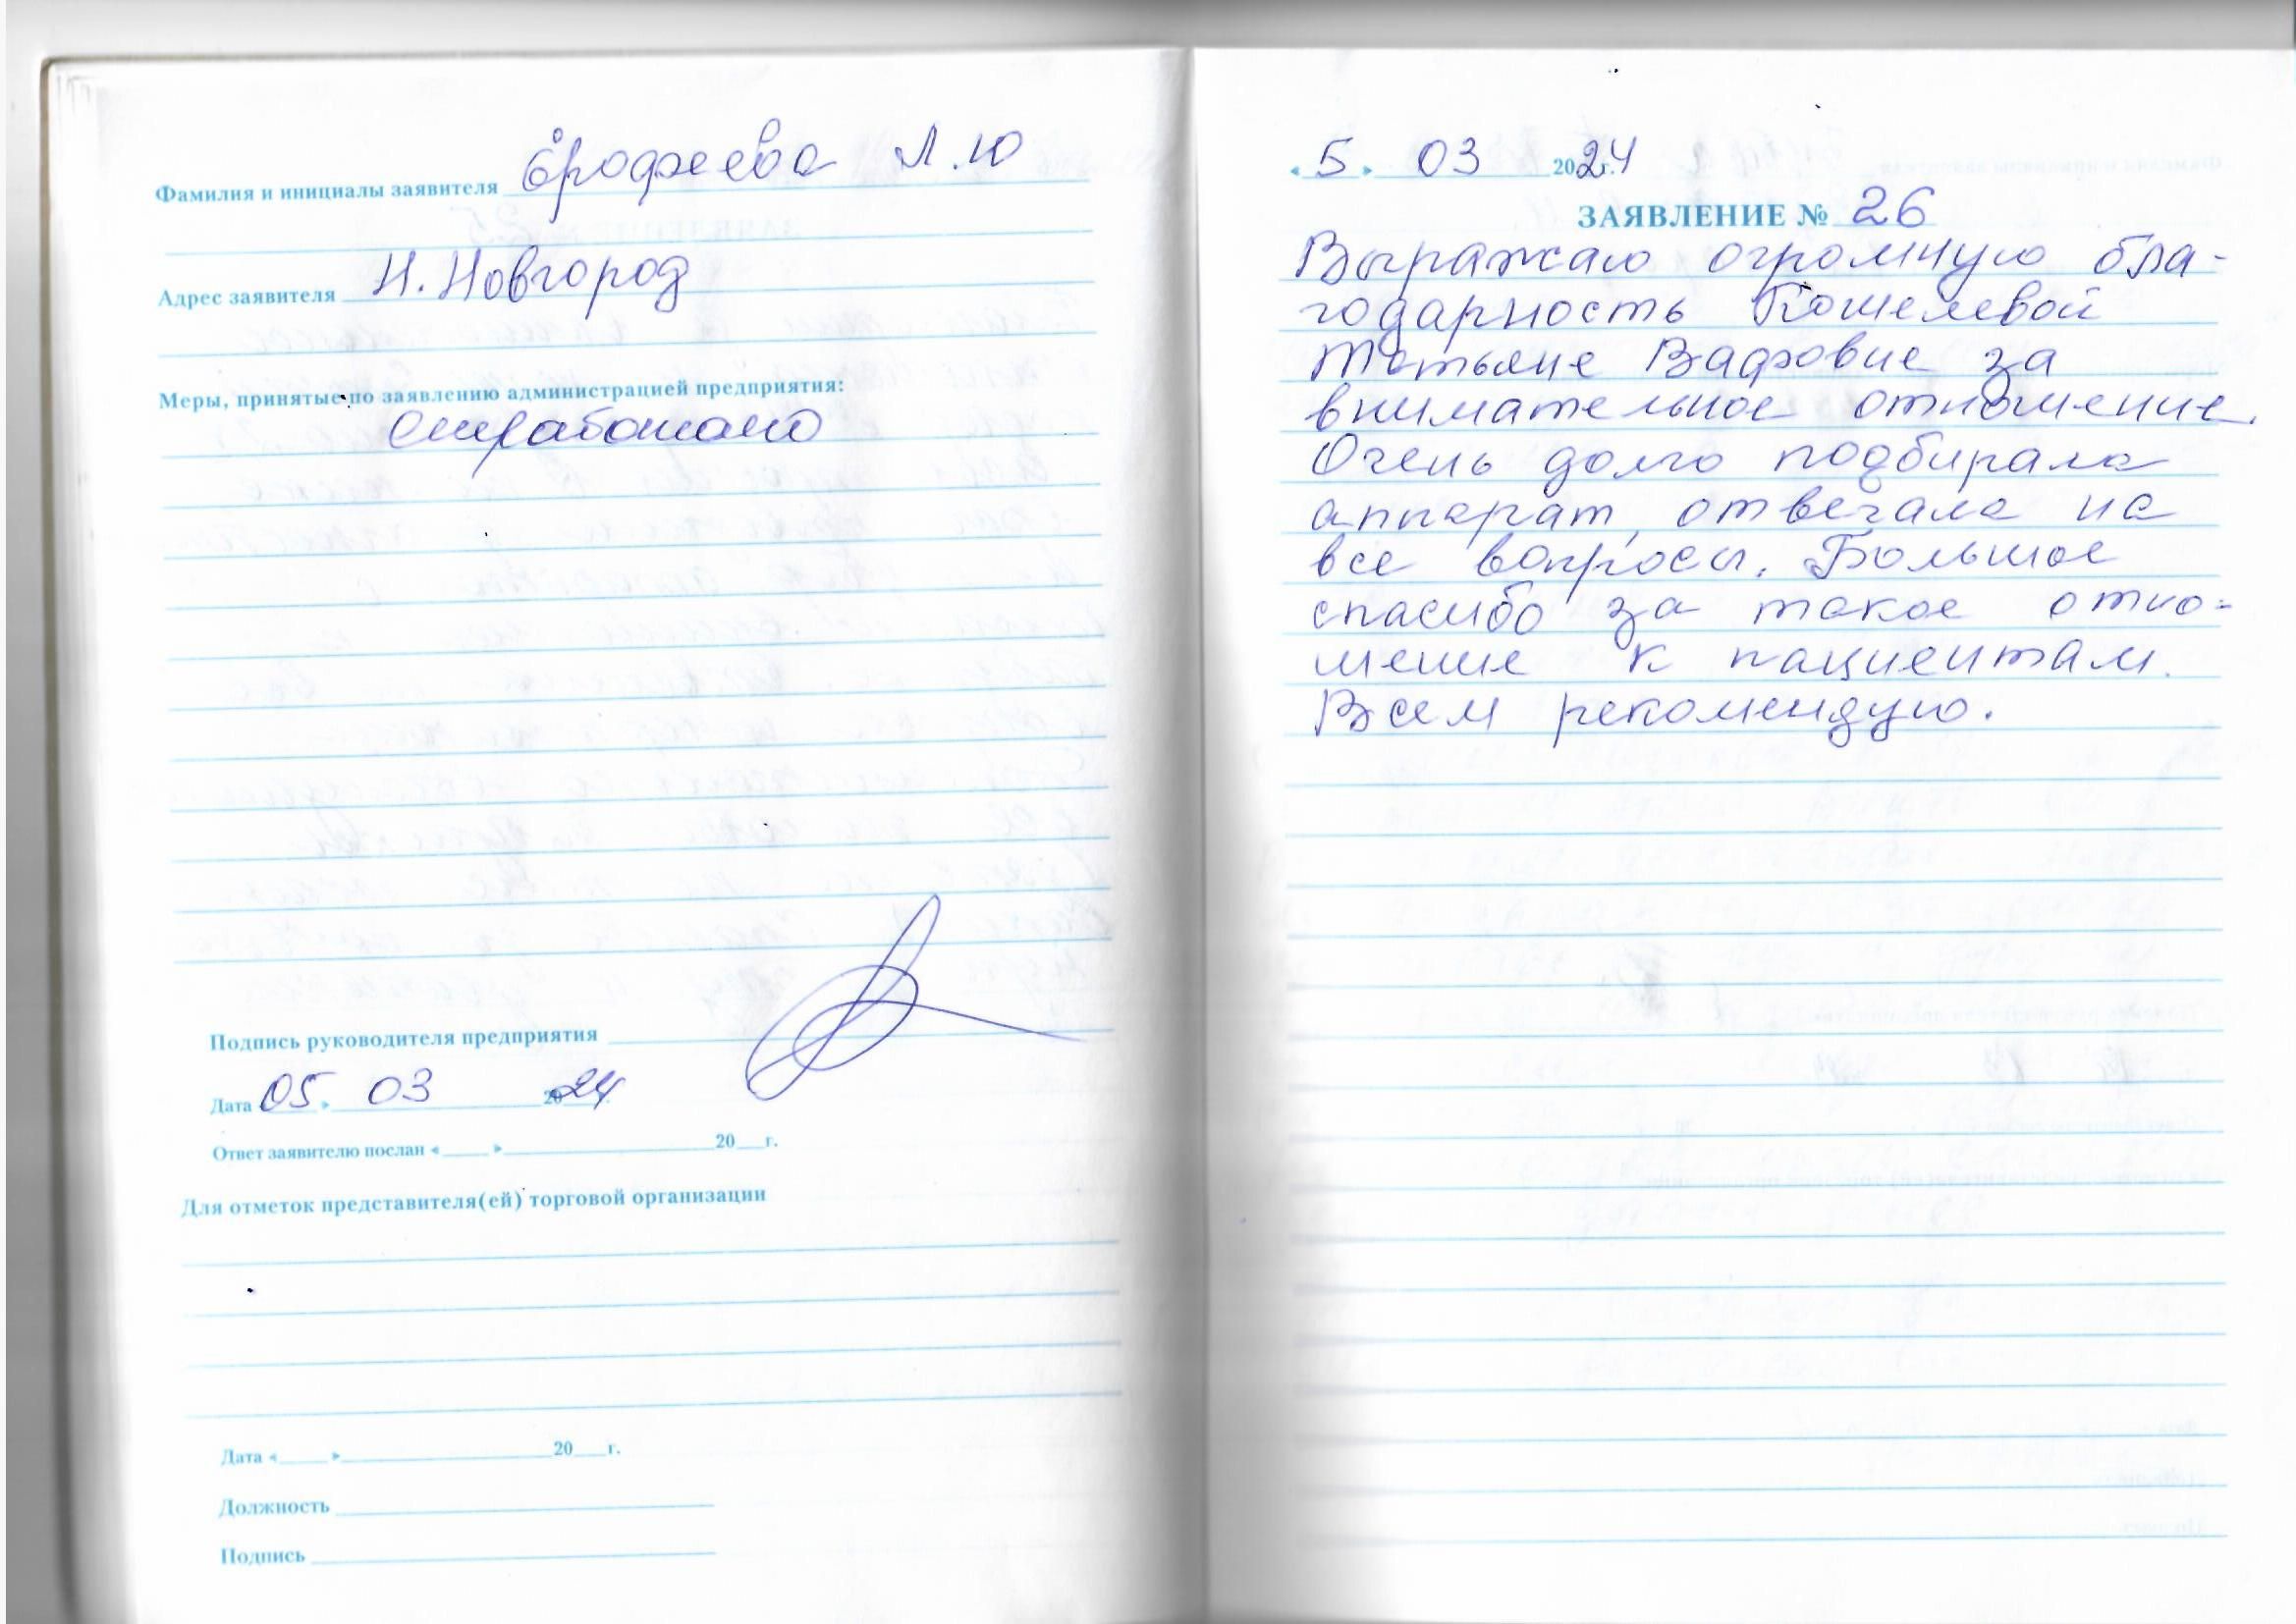 Фамилия и инициалы заявителя Ерофеева Л.Ю
Адрес заявителя Н.Новгород
Меры, принятые по заявлению администрацией предприятия:
отработано
Подпись руководителя предприятия
Дата 05 » 03 2024
Ответ заявителю послан « » 20 г.
Для отметок представителя(ей) торговой организации
Дата « » 20 г.
Должность
Подпись
« 5 » 03 2024 г.
ЗАЯВЛЕНИЕ № 26
Выражаю огромную бла-
годарность Кошелевой
Татьяне за
внимательное отношение.
Очень долго подбирала
аппарат, отвечала на
все вопросы. Большое
спасибо за такое отно-
шение к пациентам.
Всем рекомендую.